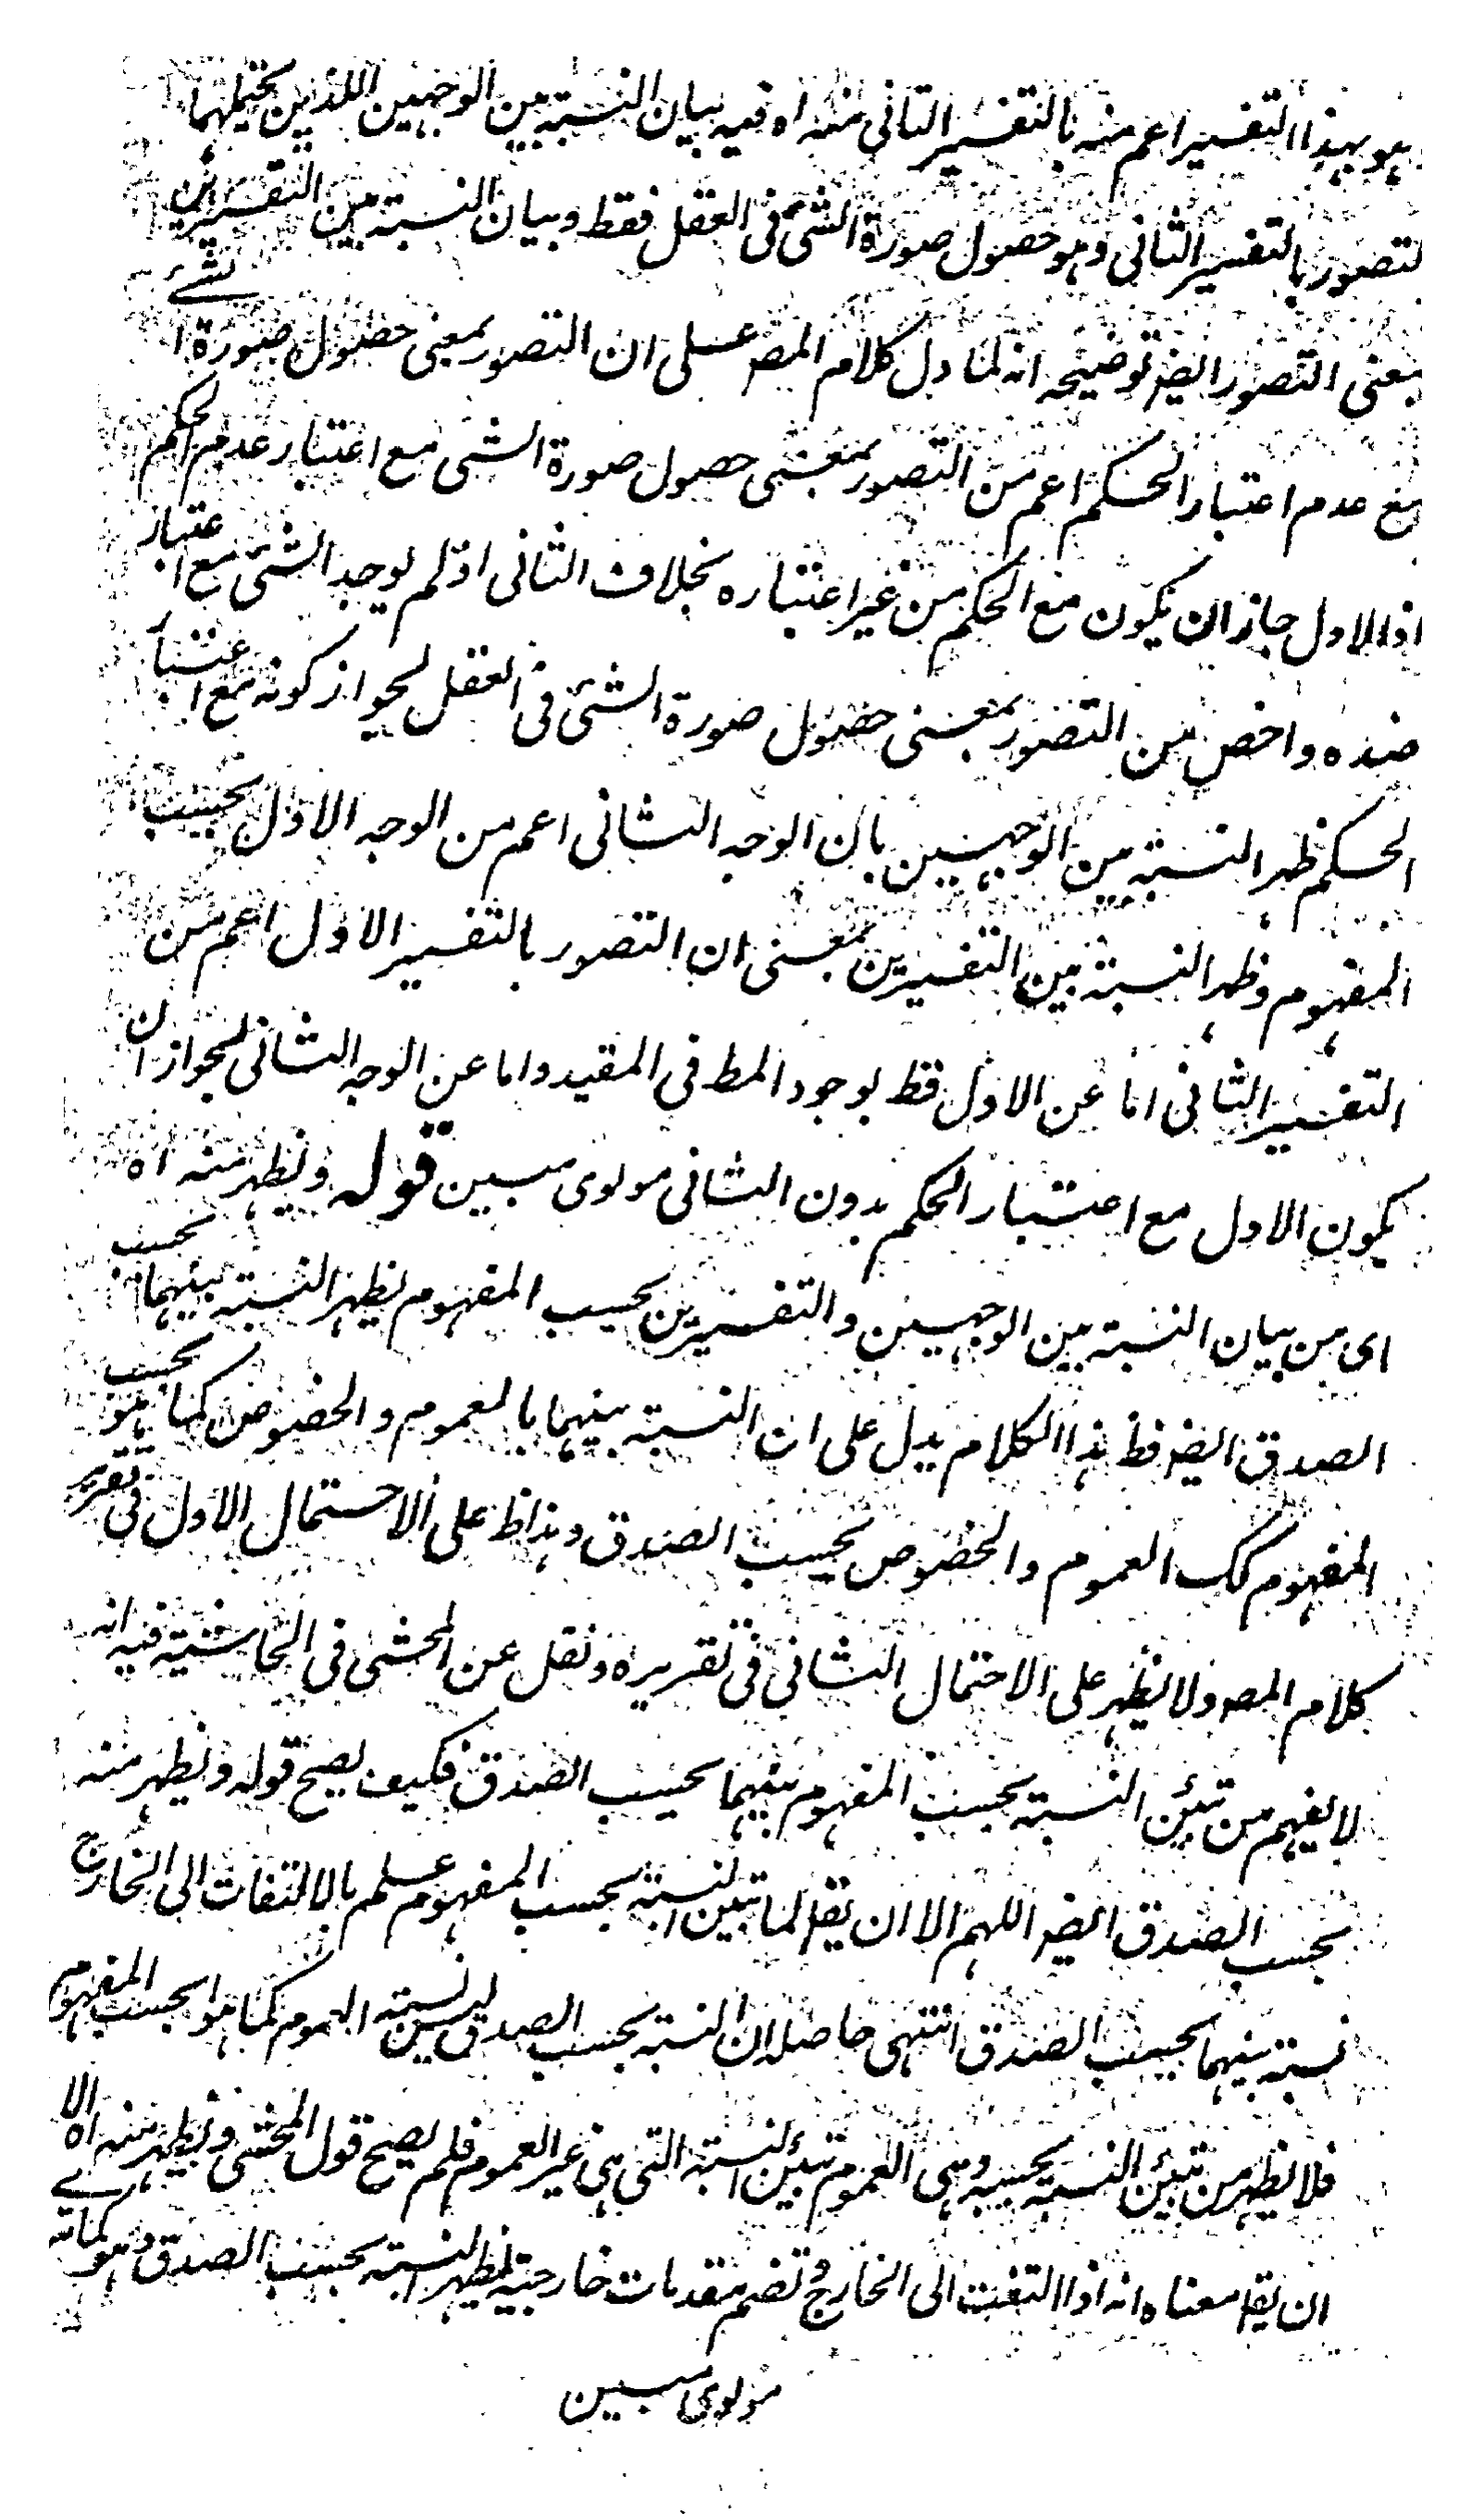 وهو بهذا التفسير اعم منه بالتفسير الثانى منه اه فيه بيان النسبة بين الوجهين اللذين يحتملهما
لتصور بالتفسير الثانى وهو حصول صورة الشئ فى العقل فقط وبيان النسبة بين التفسيرين
بمعنى التصور ايضر توضيحه انه لما دل كلام المصر على ان التصور بمعنى حصول صورة الشئ
مع عدم اعتبار الحكم اعم من التصور بمعنى حصول صورة الشى مع اعتبار عدم الحكم
اذا الاول جاز ان يكون مع الحكم من غير اعتباره بخلاف الثانى اذ لم يوجد الشئ مع اعتبار
ضده واخص من التصور بمعنى حصول صورة الشئ فى العقل لجواز كونه مع اعتبار
الحكم ظهر النسبة بين الوجهين بان الوجه الثانى اعم من الوجه الاول بحسب
المفهوم وظهر النسبة بين التفسيرين بمعنى ان التصور بالتفسير الاول اعم من
التفسير الثانى اما عن الاول فظ لوجود المط فى المقيد واما عن الوجه الثانى لجواز ان
يكون الاول مع اعتبار الحكم بدون الثانى مولوى مبين قوله ويظهر منه اه
اى من بيان النسبة بين الوجهين والتفسيرين بحسب المفهوم يظهر النسبة بينهما بحسب
الصدق ايضر فظ هذا الكلام يدل على ان النسبة بينهما بالعموم والخصوص كما هو بحسب
المفهوم كك العموم والخصوص بحسب الصدق وهذا ظ على الاحتمال الاول فى تقرير
كلام المصر ولا يظهر على الاحتمال الثانى فى تقريره ونقل عن المحشى فى الحاشية فيه انه
لا يفهم من تبين النسبة بحسب المفهوم بينهما بحسب الصدق فكيف يصح قوله ويظهر منه
بحسب الصدق ايضر اللهم الا ان يقر لما تبين النسبة بحسب المفهوم علم بالالتفات الى الخارج
نسبة بينهما بحسب الصدق انتهى حاصله ان النسبة بحسب الصدق ليس نسبة العموم كما هو بحسب المفهوم
فلا يظهر من تبين النسبة بحسبه وهى العموم تبين النسبة التى هى غير العموم فلم يصح قول المحشى ويظهر منه اه الا
ان يقر معناه انه اذا التفت الى الخارج وتضم مقدمات خارجية يظهر النسبة بحسب الصدق وهو كما ترى
مولوى مبين